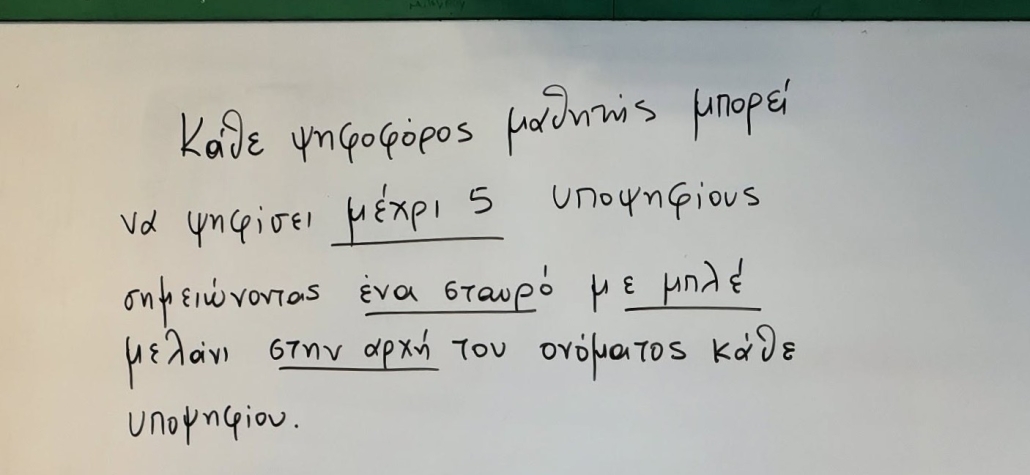 Κάθε ψηφοφόρος μαθητής μπορεί
να ψηφίσει μέχρι 5 υποψηφίους
σημειώνοντας ένα σταυρό με μπλέ
μελάνι στην αρχή του ονόματος κάθε
υποψηφίου.